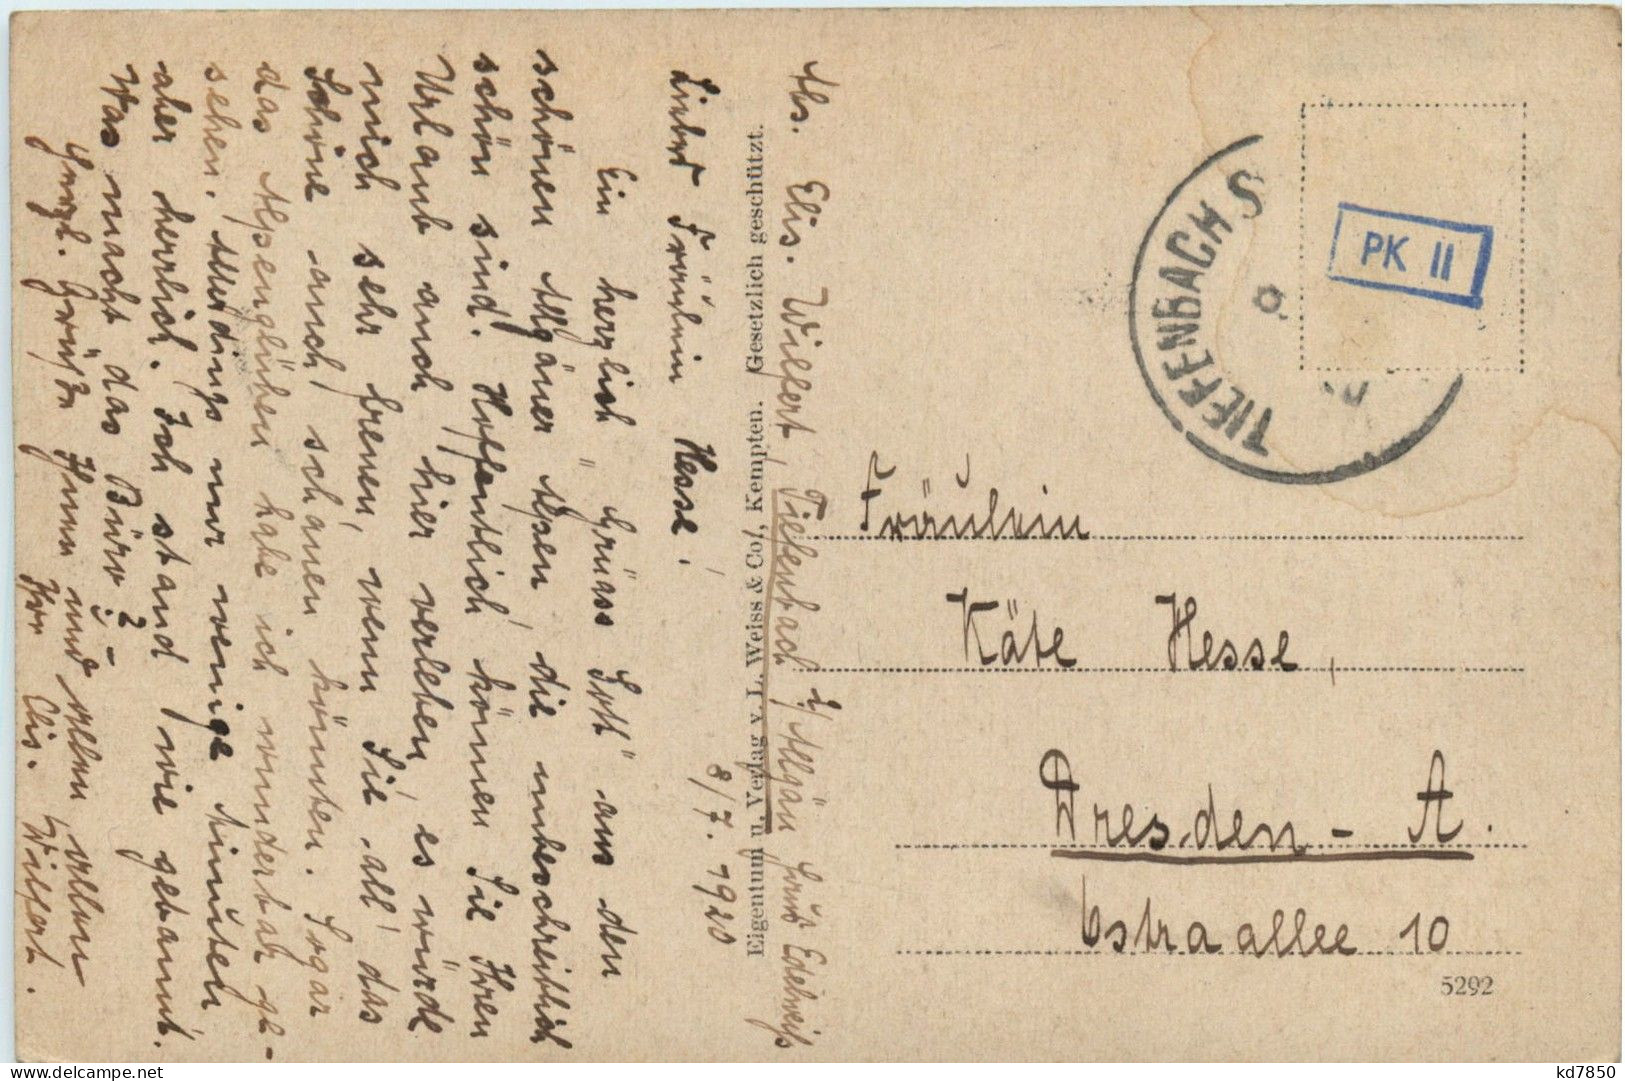 Abs. Elis. Wilfert, Tiefenbach i/Allgäu Haus Edelweiß
8/7. 1920
Liebes Fräulein Hesse!
Ein herzlich "Grüass Gott" aus den
schönen Allgäuer Alpen, die unbeschreiblich
schön sind. Hoffentlich können Sie Ihren
Urlaub auch hier verleben, es würde
mich sehr freuen, wenn Sie all' das
Schöne auch schauen könnten. Sogar
das Alpenglühen habe ich wunderbar ge-
sehen. Allerdings nur wenige Minuten
aber herrlich. Ich stand wie gebannt.
Was macht das Büro? -
Herzl. Grüße Ihnen und allen, allen
Ihre Elis. Wilfert.
Eigentum u. Verlag v. L. Weiss & Co., Kempten. Gesetzlich geschützt.
TIEFENBACH S
PK II
Fräulein
Käte Hesse,
Dresden-A.
Ostraallee 10
5292
kd7850